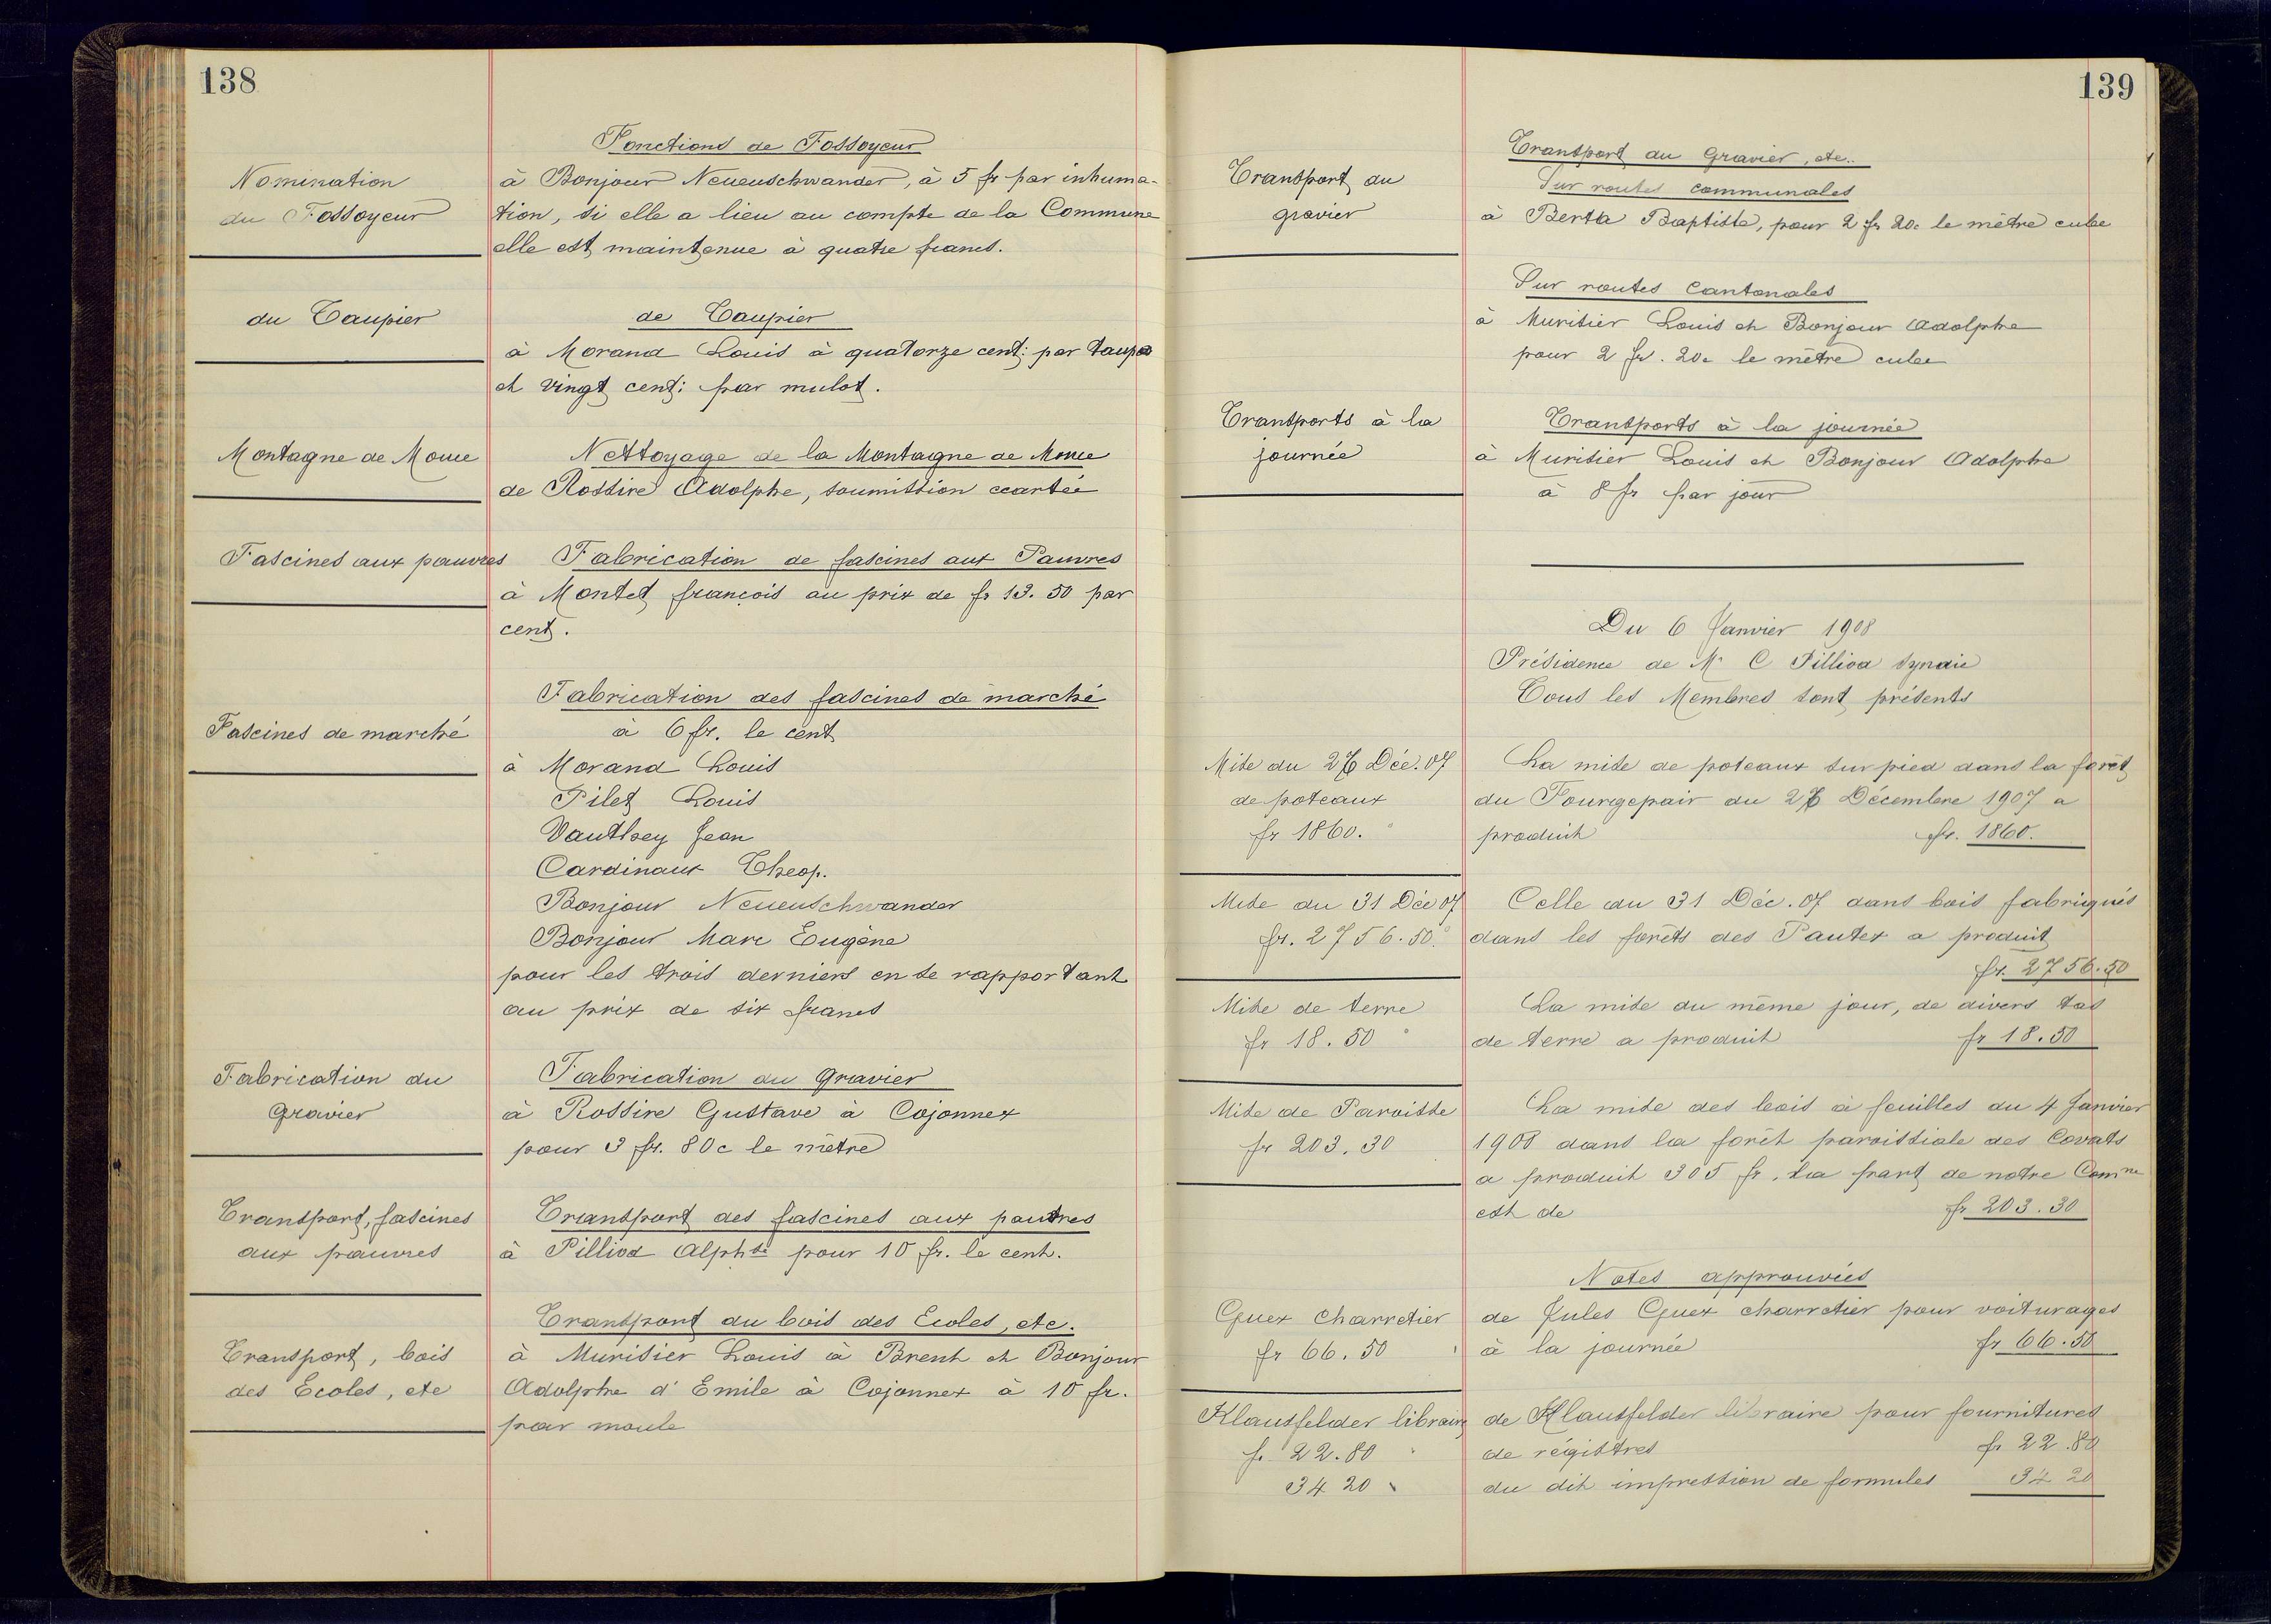 138
Fonctions de Fossoyeur
Nomination
du Fossoyeur
à Bonjour Neueuschwander, à 5 fr par inhuma-
tion, si elle a lieu au compte de la Commune
elle est maintenue à quatre francs.
du Taupier
de Taupier
à Morand Louis à quatorze cent: par taupe
et vingt cent: par mulot.
Montagne de Moue
Nettoyage de la Montagne de Moue
de Rossire Adolphe, soumission écartée
Fascines aux pauvres
Fabrication de fascines aux Pauvres
à Montet françois au prix de fr 13.50 par
cent.
Fascines de marché
Fabrication des fascines de marché
à 6 fr. le cent
à Morand Louis
Pilet Louis
Vauthey Jean
Cardinaux Theop.
Bonjour Neueuschwander
Bonjour Marc Eugène
pour les trois derniers en se rapportant
au prix de six francs
Fabrication du
Gravier
Fabrication du Gravier
à Rossire Gustave à Cojonnex
pour 3 fr. 80 c le mètre
Transport, fascines
aux pauvres
Transport des fascines aux pauvres
à Pilliod Alphse pour 10 fr. le cent.
Transport, bois
des Ecoles, etc
Transport du bois des Ecoles, etc.
à Murisier Louis à Brent et Bonjour
Adolphe d'Emile à Cojonnex à 10 fr.
par moule
139
Transport du
gravier
Transport du Gravier, etc..
Sur routes communales
à Berta Baptiste, pour 2 fr 20c le mètre cube
Sur routes Cantonales
à Murisier Louis et Bonjour Adolphe
pour 2 fr. 20c le mètre cube
Transports à la
journée
Transports à la journée
à Murisier Louis et Bonjour Adolphe
à 8 fr par jour
Du 6 Janvier 1908
Présidence de Mr C Pilliod syndic
Tous les Membres sont présents
Mise du 26 Déc. 07
de poteaux
fr 1860.
La mise de poteaux sur pied dans la forêt
du 26 Décembre 1907 a
produit fr. 1860.
Mise du 31 Déc 07
fr. 2756.50
Celle du 31 Déc. 07 dans bois fabriqués
dans les forêts des Pautex a produit
fr. 2756.50
Mise de terre
fr 18.50
La mise du même jour, de divers tas
de terre a produit fr 18.50
Mise de Paroisse
fr 203.30
La mise des bois à feuilles du 4 Janvier
1908 dans la forêt paroissiale des Covats
a produit 305 fr. La part de notre Comne
est de fr 203.30
Notes approuvées
Guex Charretier
fr 66.50
de Jules Guex charretier pour voiturages
à la journée fr 66.50
Klausfelder libraire
fr 22.80
34 20
de Klausfelder libraire pour fournitures
de régistres fr 22.80
du dit impression de formules 34 20